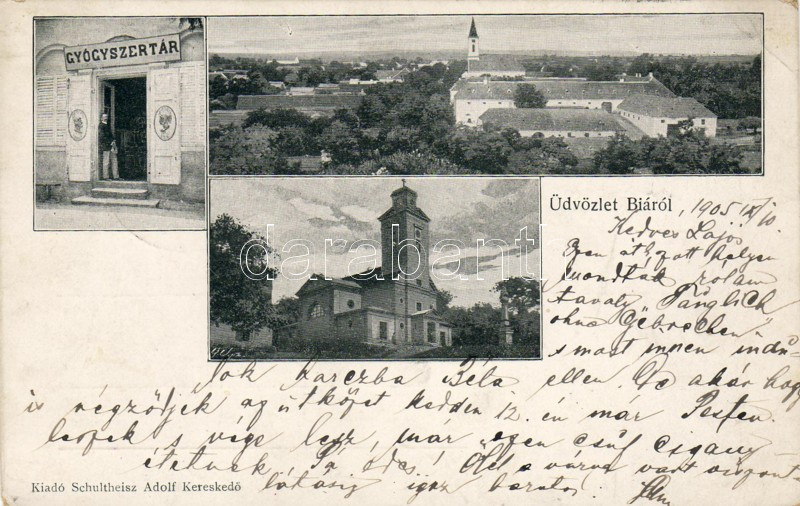 GYÓGYSZERTÁR
Üdvözlet Biáról, 1905 IX/10.
Kedves Lajos
Ezen átkozott helyen
mondták rólam
tavaly "Tänglich
ohne Gebrechen"
s most innen indu-
lok Karczba Béla ellen. De akár hogy
is végződjék az ütközet kedden 12. én már Pesten
leszek s vége lesz, már "ezen csúf czigány
életnek Pá édes! Ölel a várva várt viszont-
látásig igaz barátod:
darabanth.com
Kiadó Schultheisz Adolf Kereskedő